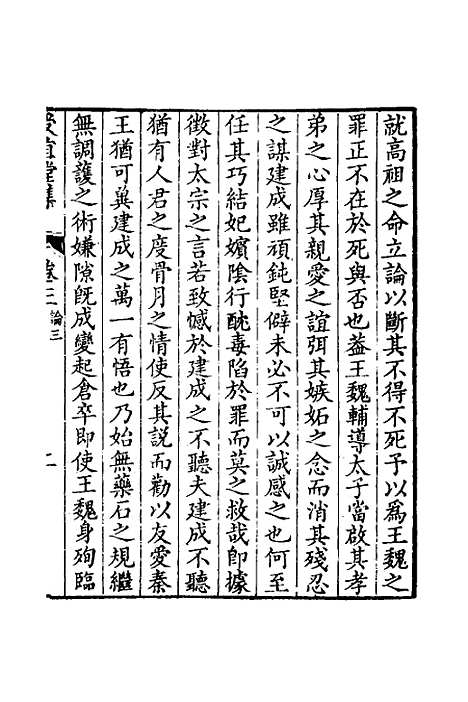 就高祖之命立論以斷其不得不死予以爲王魏之
罪正不在於死與否也葢王魏輔導太子當啟其孝
弟之心厚其親愛之誼弭其嫉妬之念而消其殘忍
之謀建成雖頑鈍堅僻未必不可以誠感之也何至
任其巧結妃嬪陰行酖毒陷於罪而莫之救哉卽據
徵對太宗之言若致憾於建成之不聽夫建成不聽
猶有人君之度骨月之情使反其説而勸以友愛秦
王猶可冀建成之萬一有悟也乃始無藥石之規繼
無調護之術嫌隙旣成變起倉卒即使王魏身殉臨
堂集 卷三 論三